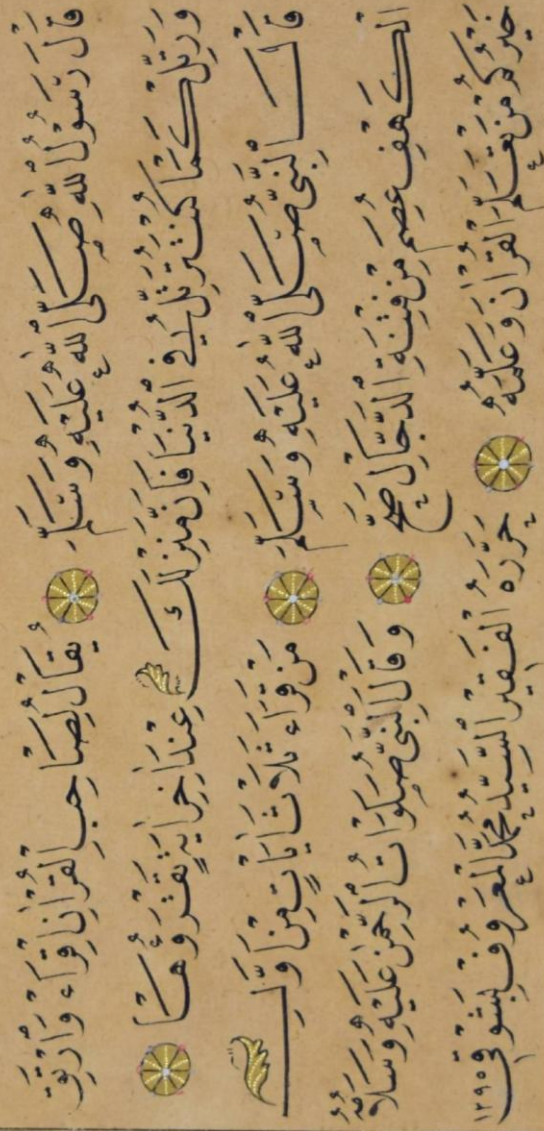 قَالَ رَسُولُ اللهِ صَلَّى اللهُ عَلَيْهِ وَسَلَّمَ يُقَالُ لِصَاحِبِ الْقُرْاٰنِ اِقْرَاْء وَارْتَقِ
وَرَتِّلْ كَمَا كُنْتَ تُرَتِّلُ فِي الدُّنْيَا فَاِنَّ مَنْزِلَكَ عِنْدَ اٰخِرِ اٰيَةٍ تَقْرَؤُهَا
قَالَ النَّبِيُّ صَلَّى اللهُ عَلَيْهِ وَسَلَّمَ مَنْ قَرَاَء ثَلَاثَ اٰيَاتٍ مِنْ اَوَّلِ
الْكَهْفِ عُصِمَ مِنْ فِتْنَةِ الدَّجَّالِ صَحَّ وَقَالَ النَّبِيُّ صَلَوَاتُ الرَّحْمٰنِ عَلَيْهِ وَسَلَامُهُ
خَيْرُكُمْ مَنْ تَعَلَّمَ الْقُرْاٰنَ وَعَلَّمَهُ حَرَّرَهُ الْفَقِيرُ السَّيِّدُ مُحَمَّدُ الْمَعْرُوفُ بِشَوْقِي ١٢٩٥